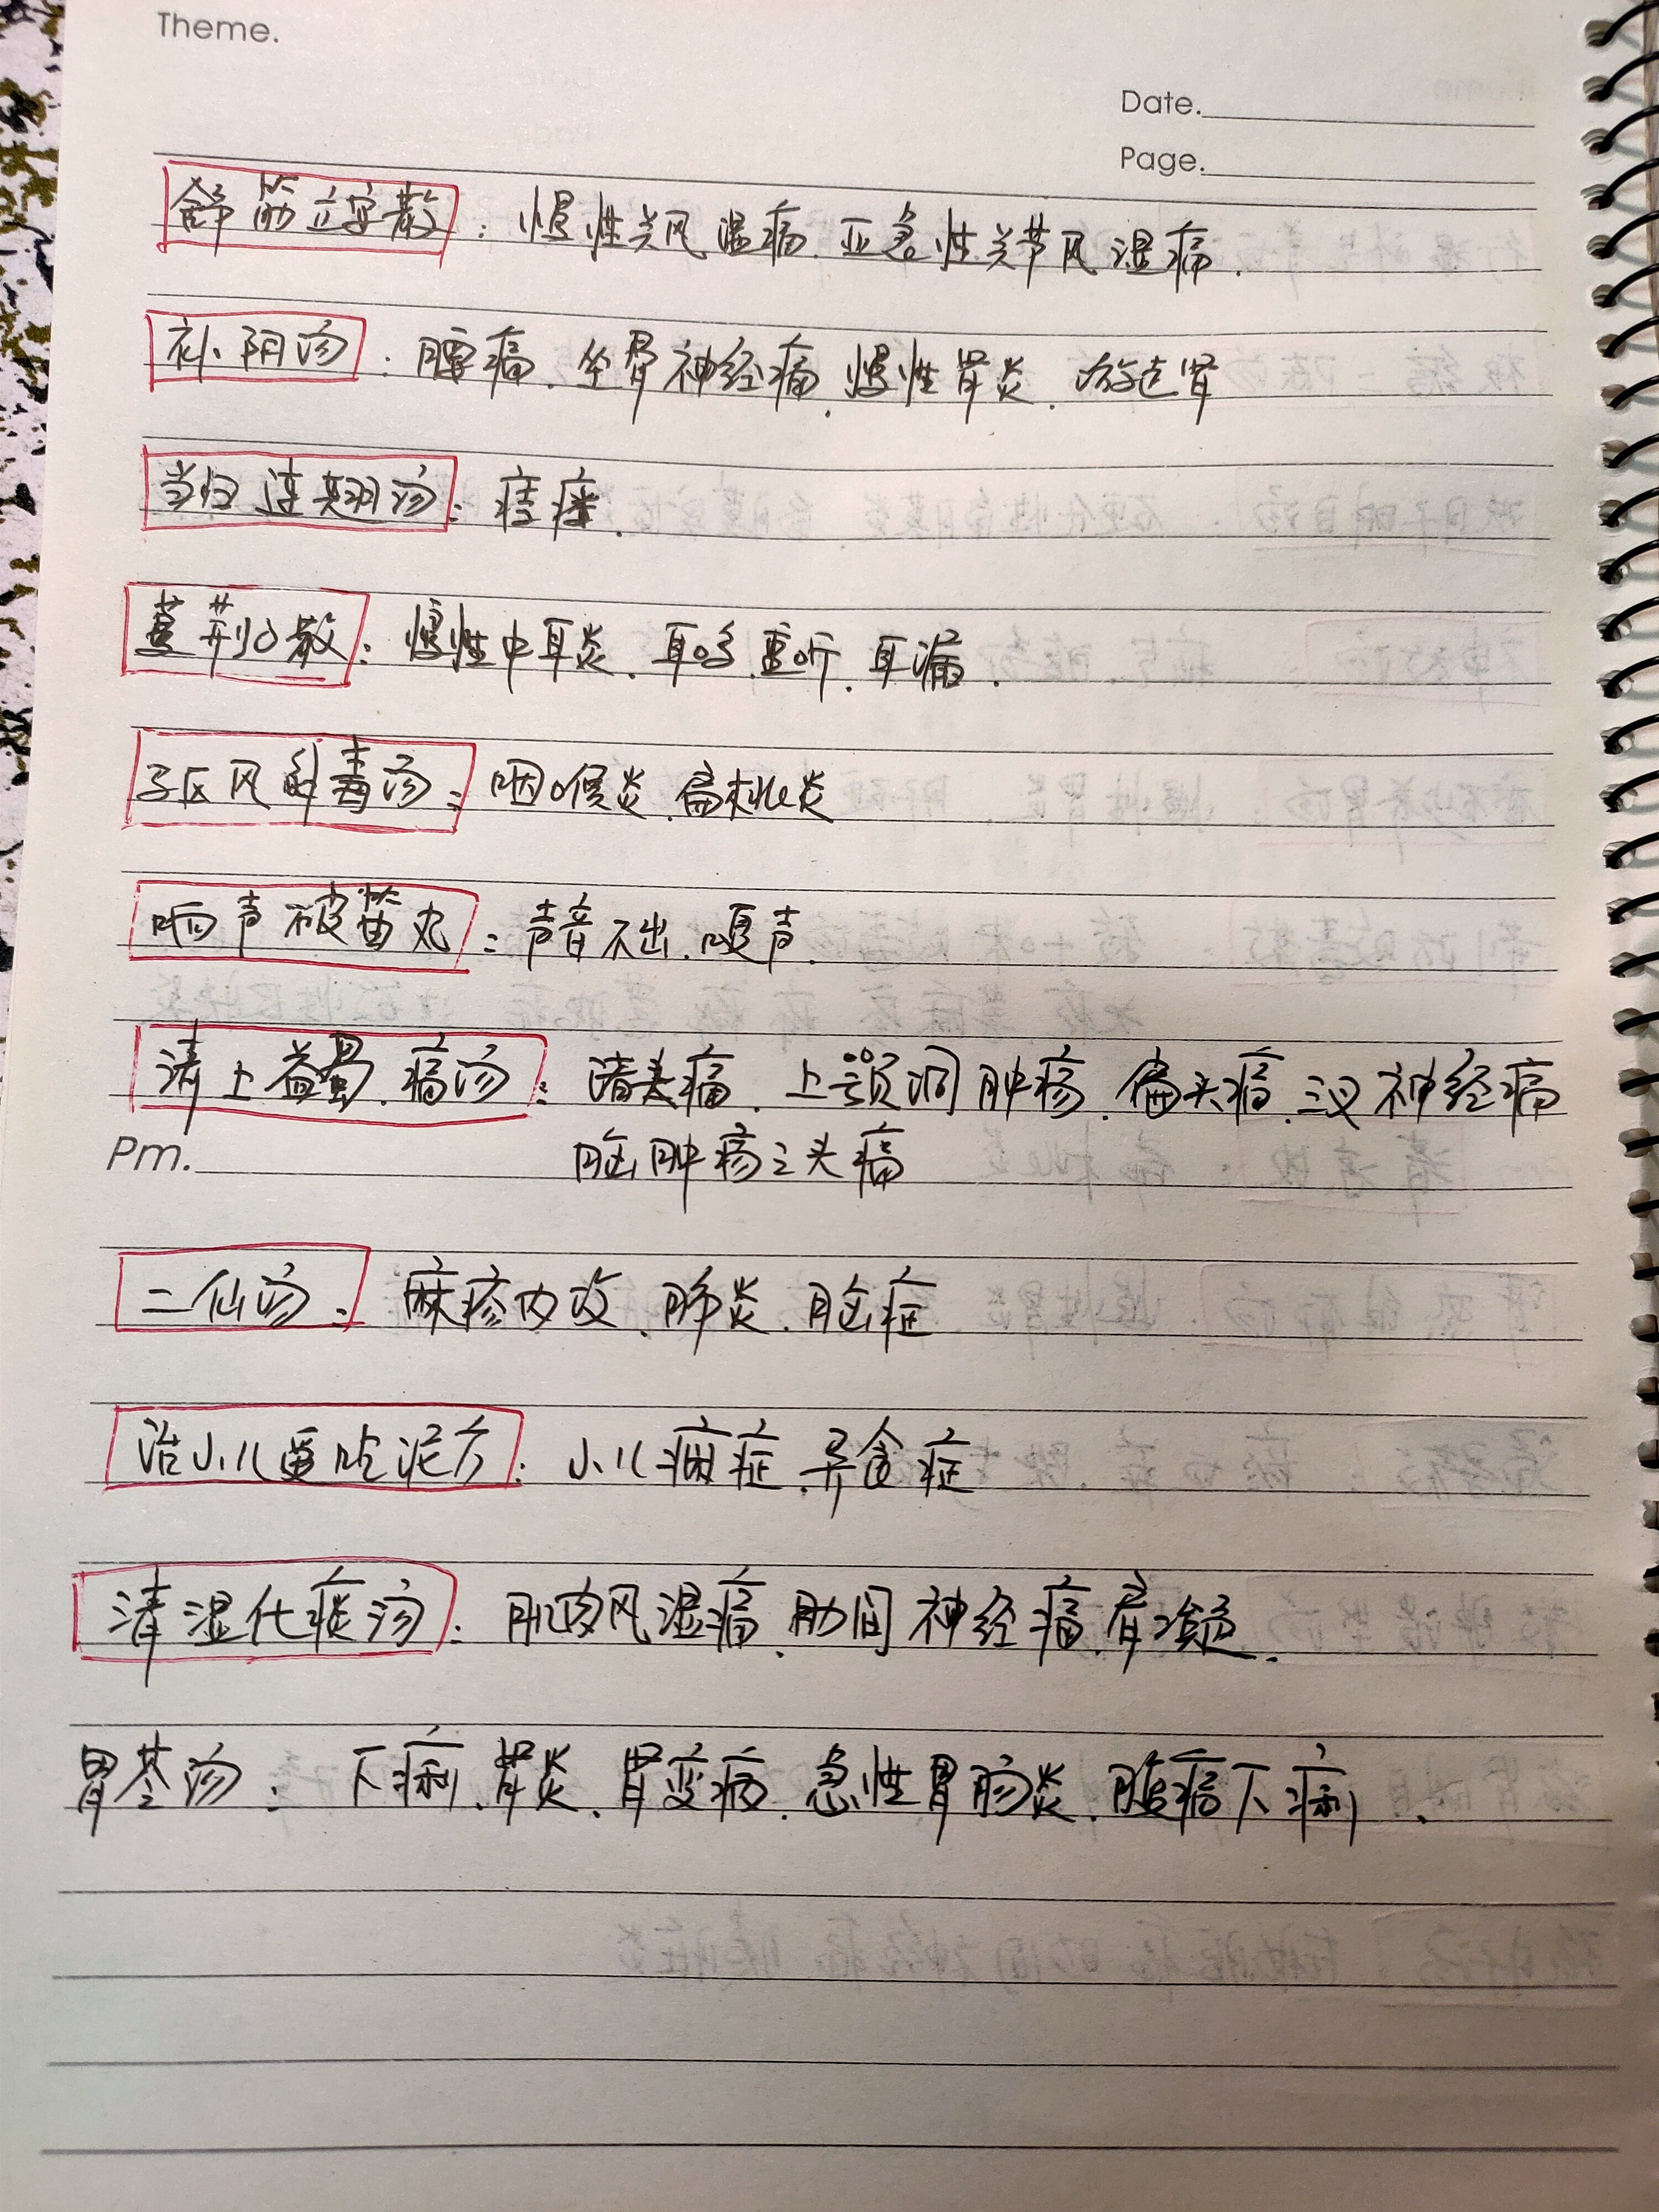 Theme.
Date.
Page.
舒筋立安散：慢性关风湿痛.亚急性关节风湿痛.
补阴汤：腰痛.坐骨神经痛.慢性肾炎.游走肾
当归连翘汤：痔瘘.
蔓荆子散：慢性中耳炎.耳鸣.重听.耳漏.
驱风解毒汤：咽喉炎.扁桃炎
响声破笛丸：声音不出.嗄声.
清上蠲痛汤：诸头痛.上颚洞肿疡.偏头痛.三叉神经痛
Pm.
脑肿疡之头痛
二仙汤：麻疹内攻.肺炎.脑症
治小儿爱吃泥方：小儿癖症.异食症
清湿化痰汤：肌肉风湿痛.肋间神经痛.肩凝.
胃苓汤：下痢.肾炎.肾变病.急性胃肠炎.腹痛下痢.